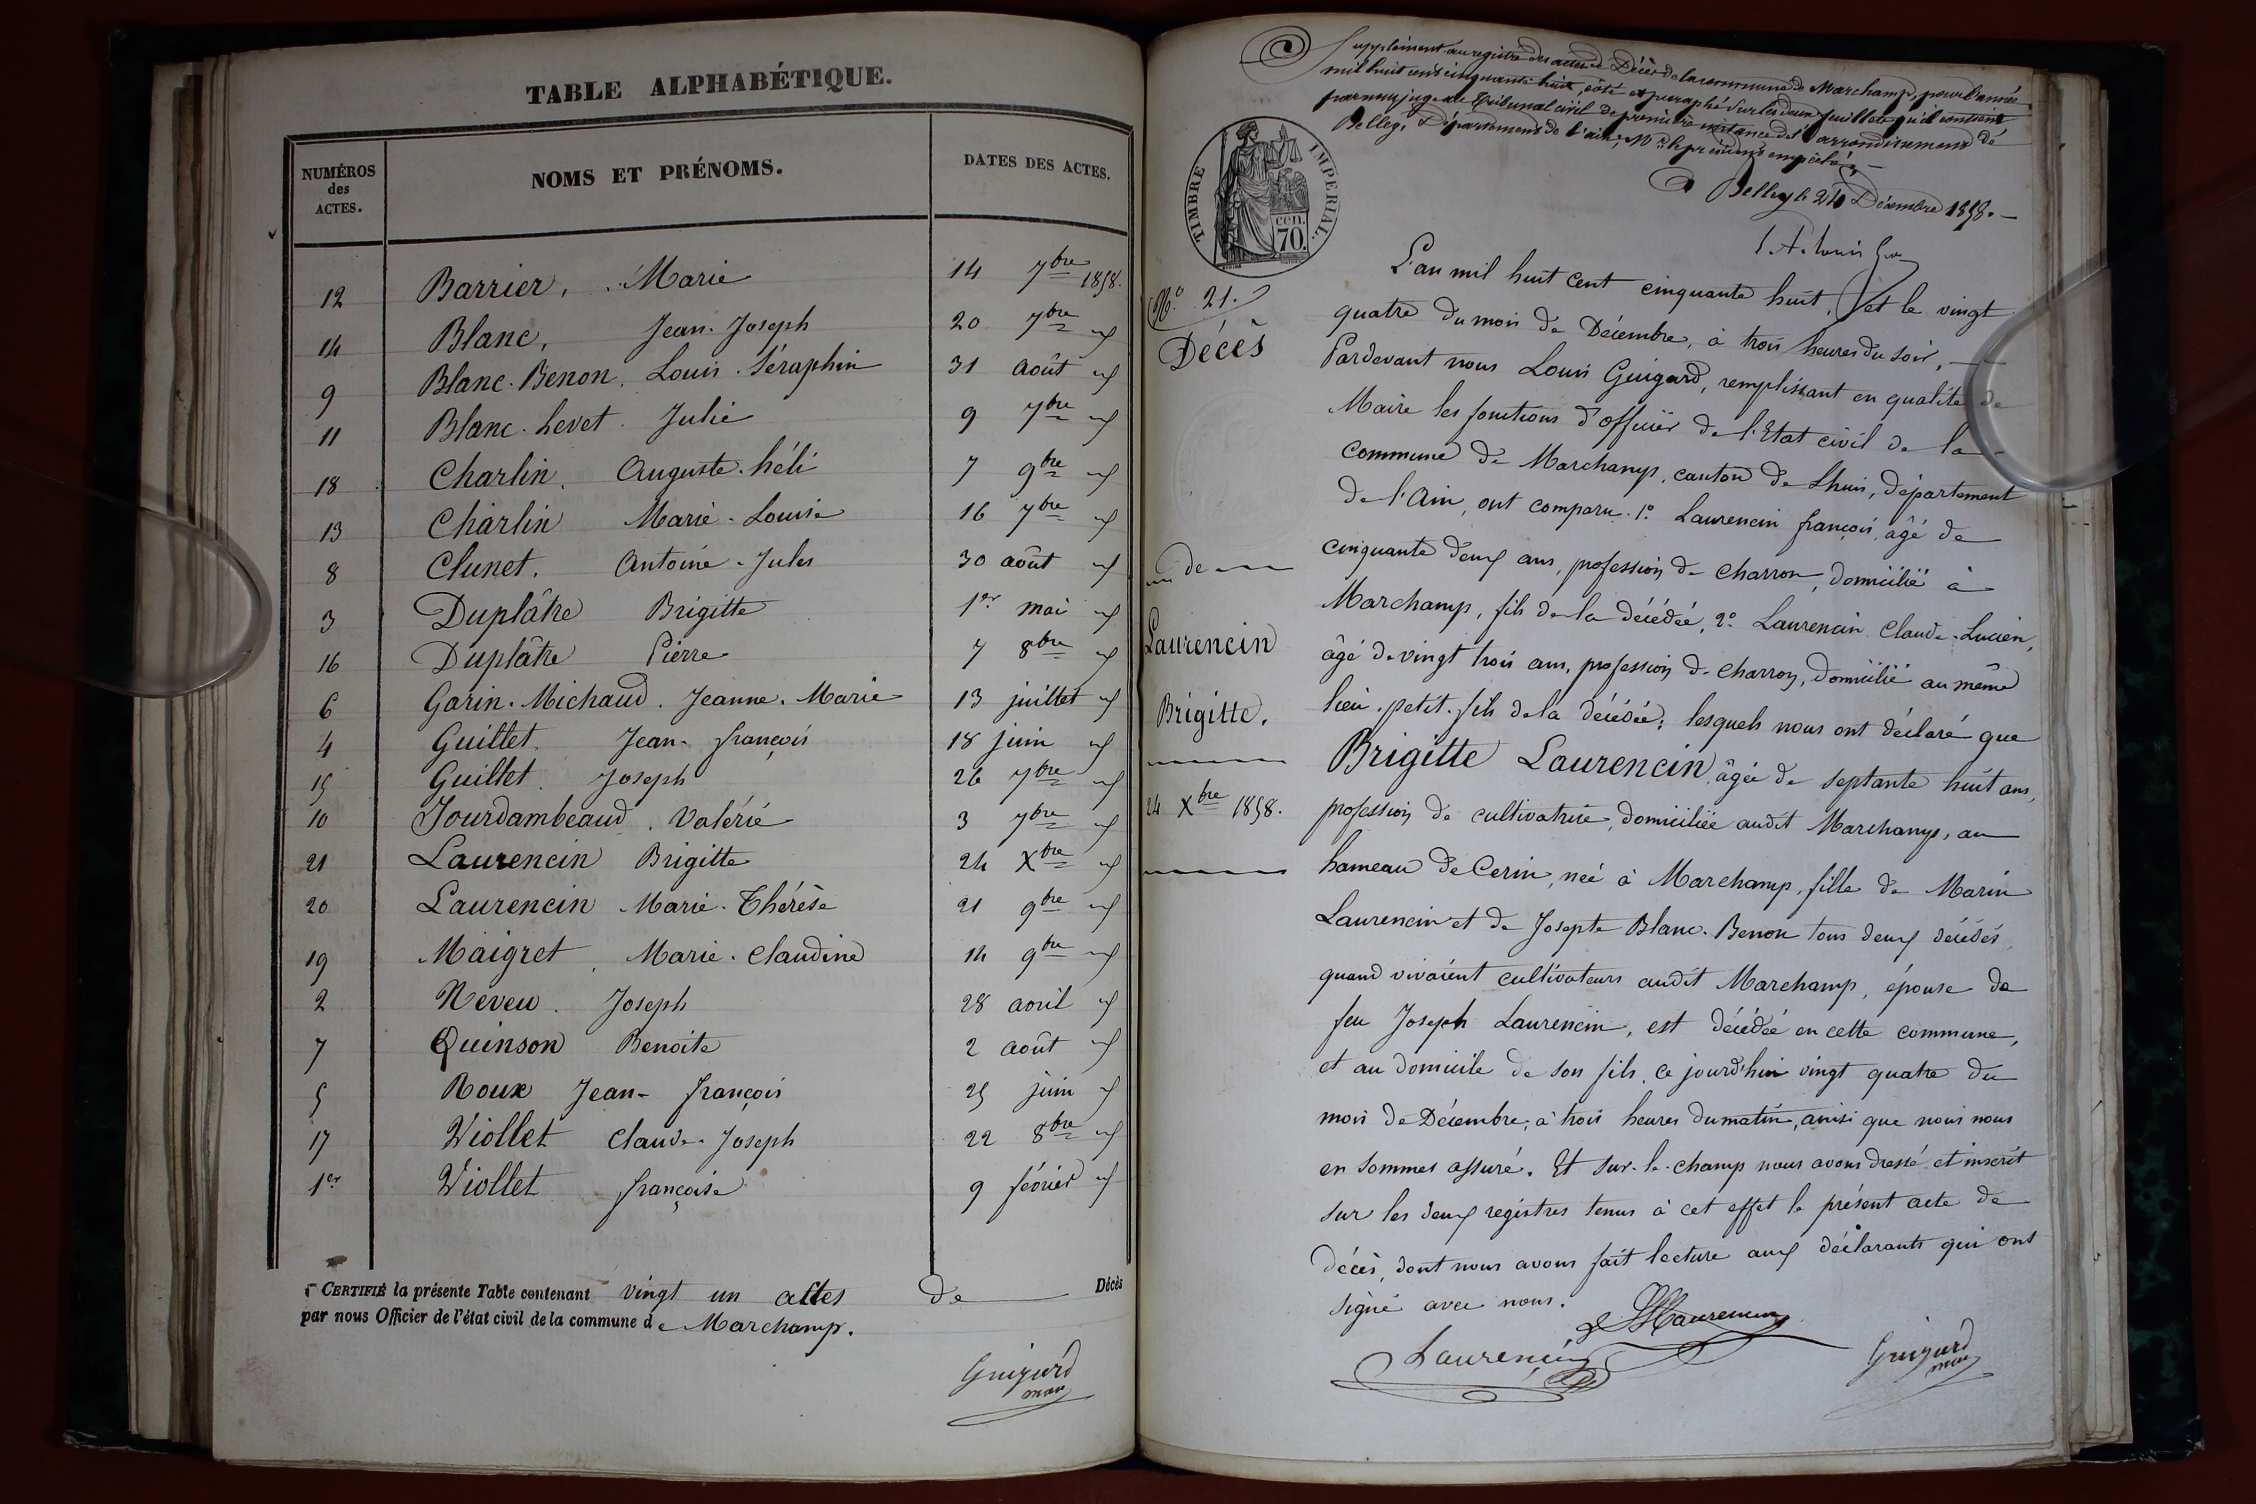 TABLE ALPHABÉTIQUE.
NUMÉROS des ACTES. NOMS ET PRÉNOMS. DATES DES ACTES.
12 Barrier, Marie 14 7bre 1858.
14 Blanc, Jean-Joseph 20 7bre
9 Blanc-Benon, Louis-Séraphin 31 août
11 Blanc-Levet. Julie 9 7bre
18 Charlin. Auguste-héli 7 9bre
13 Charlin Marie-Louise 16 7bre
8 Clunet. Antoine-Jules 30 août
3 Duplâtre Brigitte 1er mai
16 Duplâtre Pierre 7 8bre
6 Garin-Michaud. Jeanne-Marie 13 juillet
4 Guillet Jean-françois 18 juin
15 Guillet. Joseph 26 7bre
10 Jourdambeaud. Valérie 3 7bre
21 Laurencin Brigitte 24 Xbre
20 Laurencin Marie-Thérèse 21 9bre
19 Maigret Marie-Claudine 14 9bre
2 Neveu. Joseph 28 avril
7 Quinson Benoite 2 août
5 Roux Jean-françois 25 juin
17 Viollet Claude-Joseph 22 8bre
1er Viollet françoise 9 février
CERTIFIÉ la présente Table contenant vingt un actes de Décès
par nous Officier de l'état civil de la commune de Marchamp.
Guigard
maire
Supplément au registre des actes de Décès de la commune de Marchamp, pour l'année
mil huit cent cinquante huit, coté et paraphé sur les deux feuillets qu'il contient
par nous juge au Tribunal civil de première instance de l'arrondissement de
Belley, Département de l'ain, Mr le président empêché.
A Belley le 24 Décembre 1858.
TIMBRE IMPERIAL.
cen. 70.
No. 21.
Décès
de
Laurencin
Brigitte.
24 Xbre 1858.
L'an mil huit cent cinquante huit, et le vingt
quatre du mois de Décembre, à trois heures du soir,
Pardevant nous Louis Guigard, remplissant en qualité de
Maire les fonctions d'officier de l'Etat civil de la
commune de Marchamp, canton de Lhuis, département
de l'Ain, ont comparu. 1º Laurencin françois, âgé de
cinquante deux ans, profession de charron, domicilié à
Marchamp, fils de la décédée, 2º Laurencin Claude-Lucien,
âgé de vingt trois ans, profession de charron, domicilié au même
lieu, petit-fils de la décédée; lesquels nous ont déclaré que
Brigitte Laurencin, âgée de septante huit ans,
profession de cultivatrice, domiciliée audit Marchamp, au
hameau de Cerin, née à Marchamp, fille de Marin
Laurencin et de Josepte Blanc-Benon tous deux décédés,
quand vivaient cultivateurs audit Marchamp, épouse de
feu Joseph Laurencin, est décédée en cette commune,
et au domicile de son fils, ce jourd'hui vingt quatre du
mois de Décembre, à trois heures du matin, ainsi que nous nous
en sommes assuré. Et sur-le-champ nous avons dressé et inscrit
sur les deux registres tenus à cet effet le présent acte de
décès, dont nous avons fait lecture aux déclarants qui ont
signé avec nous.
Laurencin
Laurencin
Guigard
maire